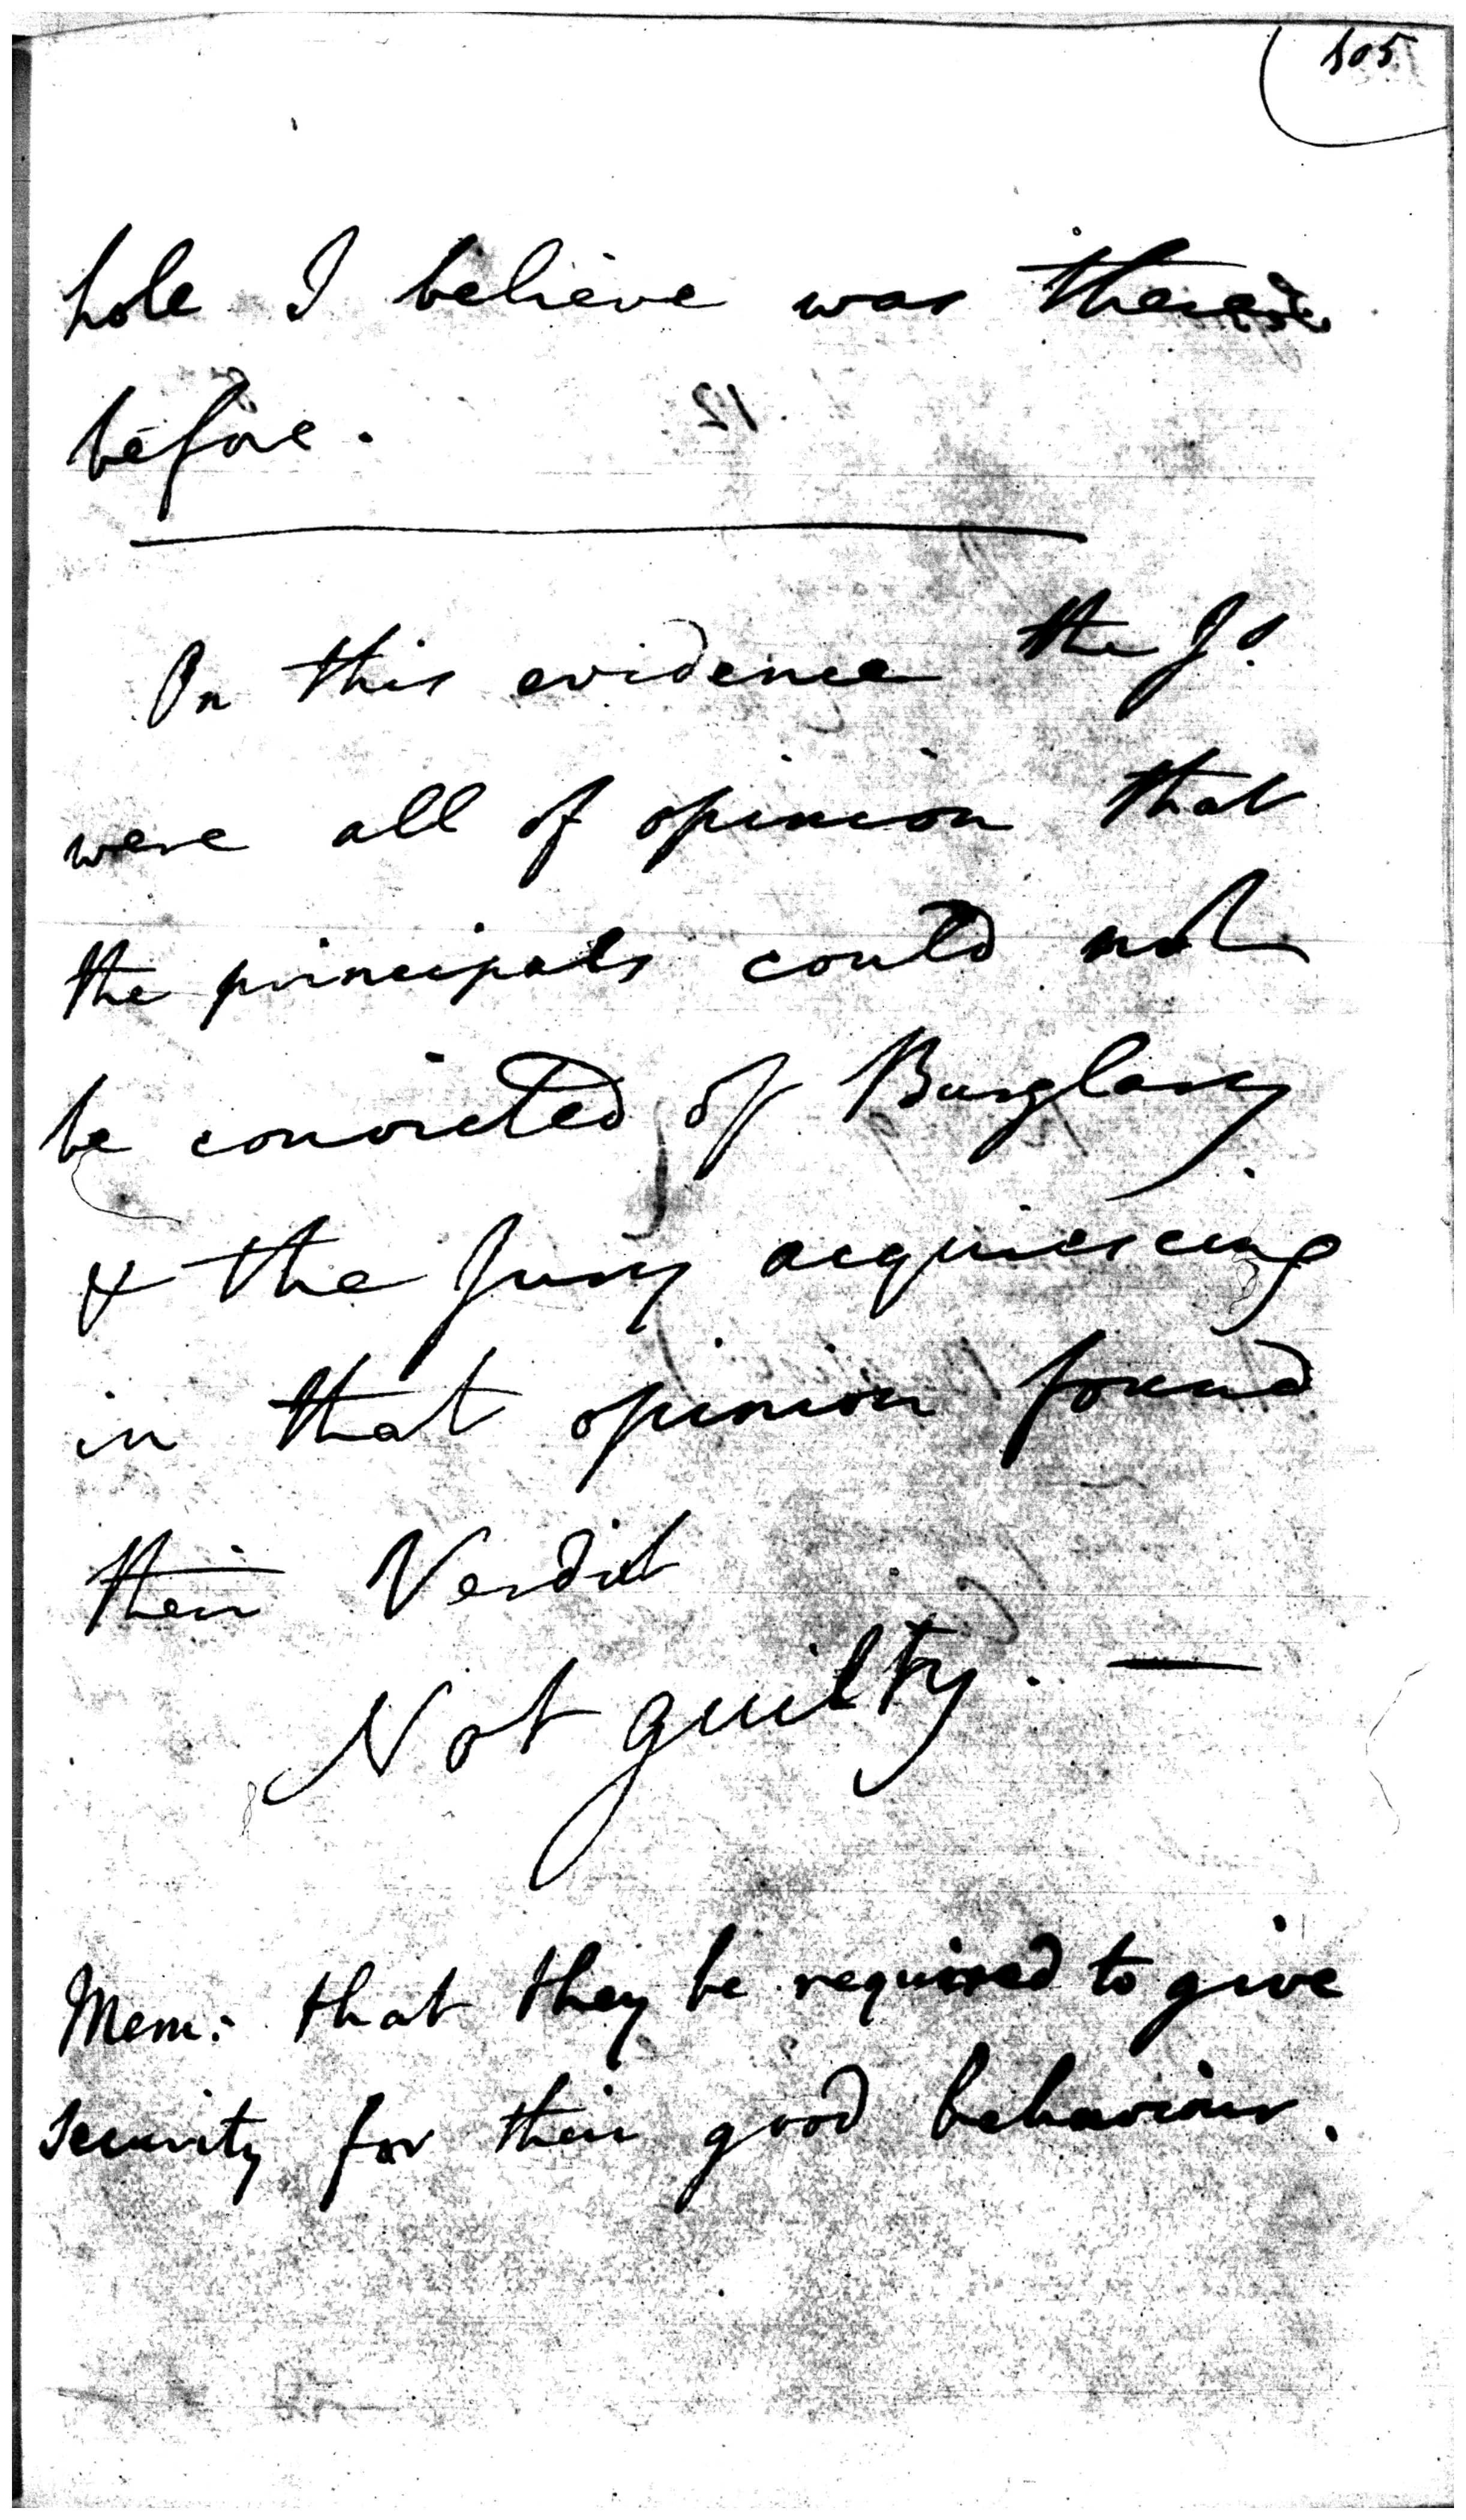 105
hole I believe was there
before.
On this evidence the Js
were all of opinion that
the principals could not
be convicted of Burglary
& the Jury acquiescing
in that opinion found
their Verdict
Not guilty. —
Mem: that they be required to give
security for their good behaviour.